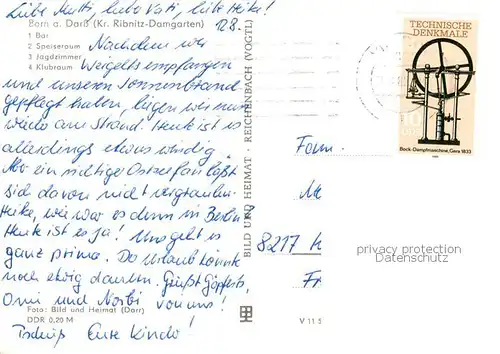 Liebe Mutti, liebe Vati, liebe Heike!
Born a. Darß (Kr. Ribnitz-Damgarten)
12.8.
1 Bar
2 Speiseraum
3 Jagdzimmer
4 Klubraum
Nachdem wir
Weigelts empfangen
und unseren Sonnenbrand
gepflegt haben, liegen wir nun
wieder am Strand. Heute ist es
allerdings etwas windig.
Aber ein richtiger Ostseefan läßt
sich davon nicht vergraulen.
Heike, wie war es denn in Berlin?
Heute ist es ja! Uns geht es
ganz prima. Der Urlaub könnte
noch ewig dauern. Grüßt Göpferts,
Omi und Norbi von uns!
Foto: Bild und Heimat (Darr)
DDR 0,20 M
Tschüß Eure Kinder!
BILD UND HEIMAT · REICHENBACH (VOGTL)
V 11 5
TECHNISCHE
DENKMALE
10
DDR
Bock-Dampfmaschine, Gera 1833
Fam.
8217
privacy protection
Datenschutz